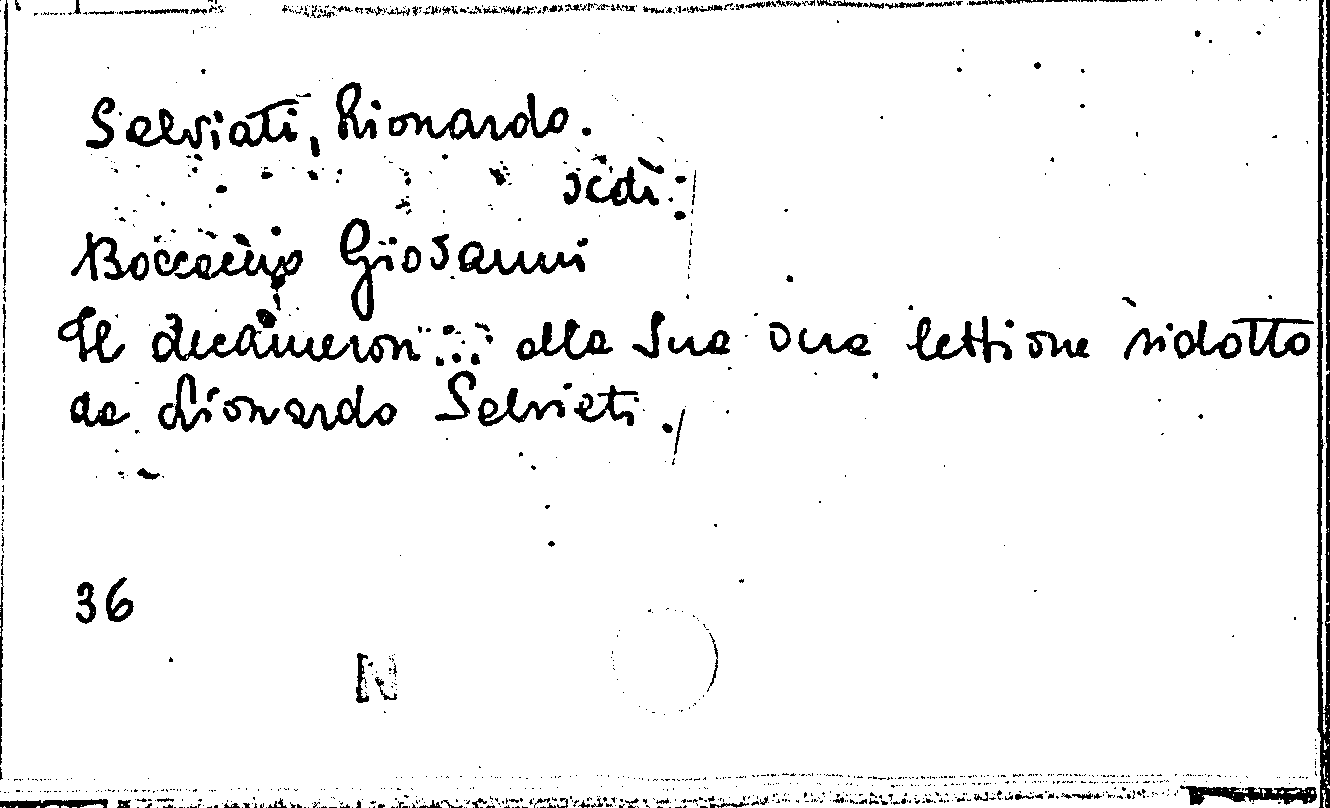 Salviati, Lionardo.
vedi:
Boccaccio Giovanni
Il decameron... alla sua vera lettione ridotto
da Lionardo Salviati.
36
N